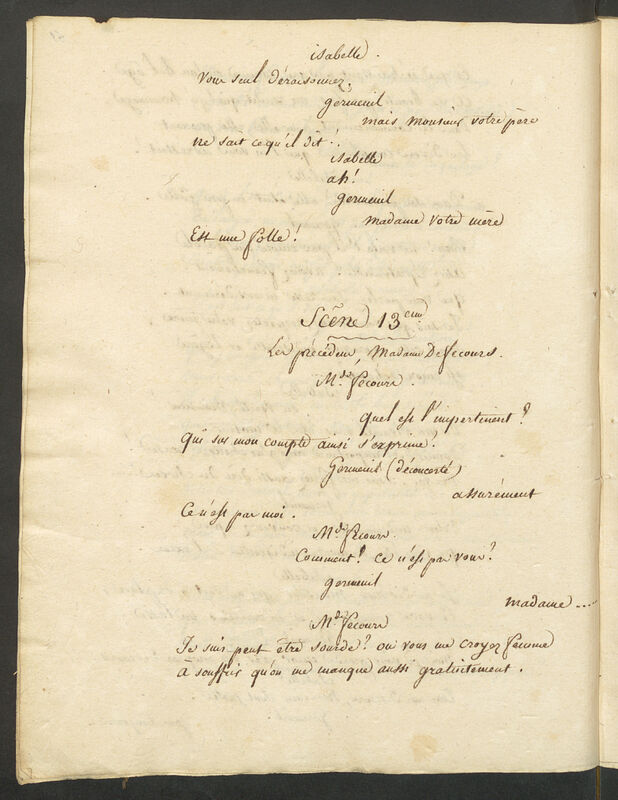 isabelle.
Vous seul déraisonnez.
germeuil
mais Monsieur votre père
ne sait ce qu'il dit!
isabelle
ah!
germeuil
madame votre mère
Est une folle!
Scène 13eme
Les précédens, Madame De Fecours.
Mde Fecours.
quel est l'impertinent?
qui sur mon compte ainsi s'exprime!
Germeuil (déconcerté)
assurément
Ce n'est pas moi.
Mde Fecours
Comment! ce n'est pas vous?
germeuil
madame....
Mde Fecours
Je suis peut être sourde? ou vous me croyez femme
à souffrir qu'on me manque aussi gratuitement.